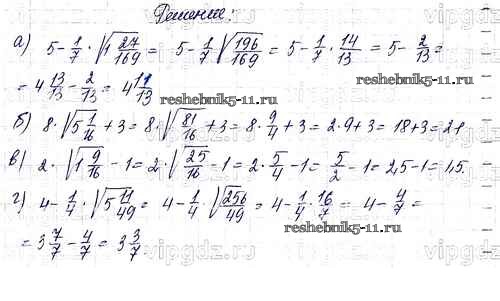 Решение:
а) 5 - 1/7 · √(1 27/169) = 5 - 1/7 · √(196/169) = 5 - 1/7 · 14/13 = 5 - 2/13 =
= 4 13/13 - 2/13 = 4 11/13
reshebnik5-11.ru
б) 8 · √(5 1/16) + 3 = 8 · √(81/16) + 3 = 8 · 9/4 + 3 = 2 · 9 + 3 = 18 + 3 = 21.
в) 2 · √(1 9/16) - 1 = 2 · √(25/16) - 1 = 2 · 5/4 - 1 = 5/2 - 1 = 2,5 - 1 = 1,5.
г) 4 - 1/4 · √(5 11/49) = 4 - 1/4 · √(256/49) = 4 - 1/4 · 16/7 = 4 - 4/7 =
reshebnik5-11.ru
= 3 7/7 - 4/7 = 3 3/7
vipgdz.ru